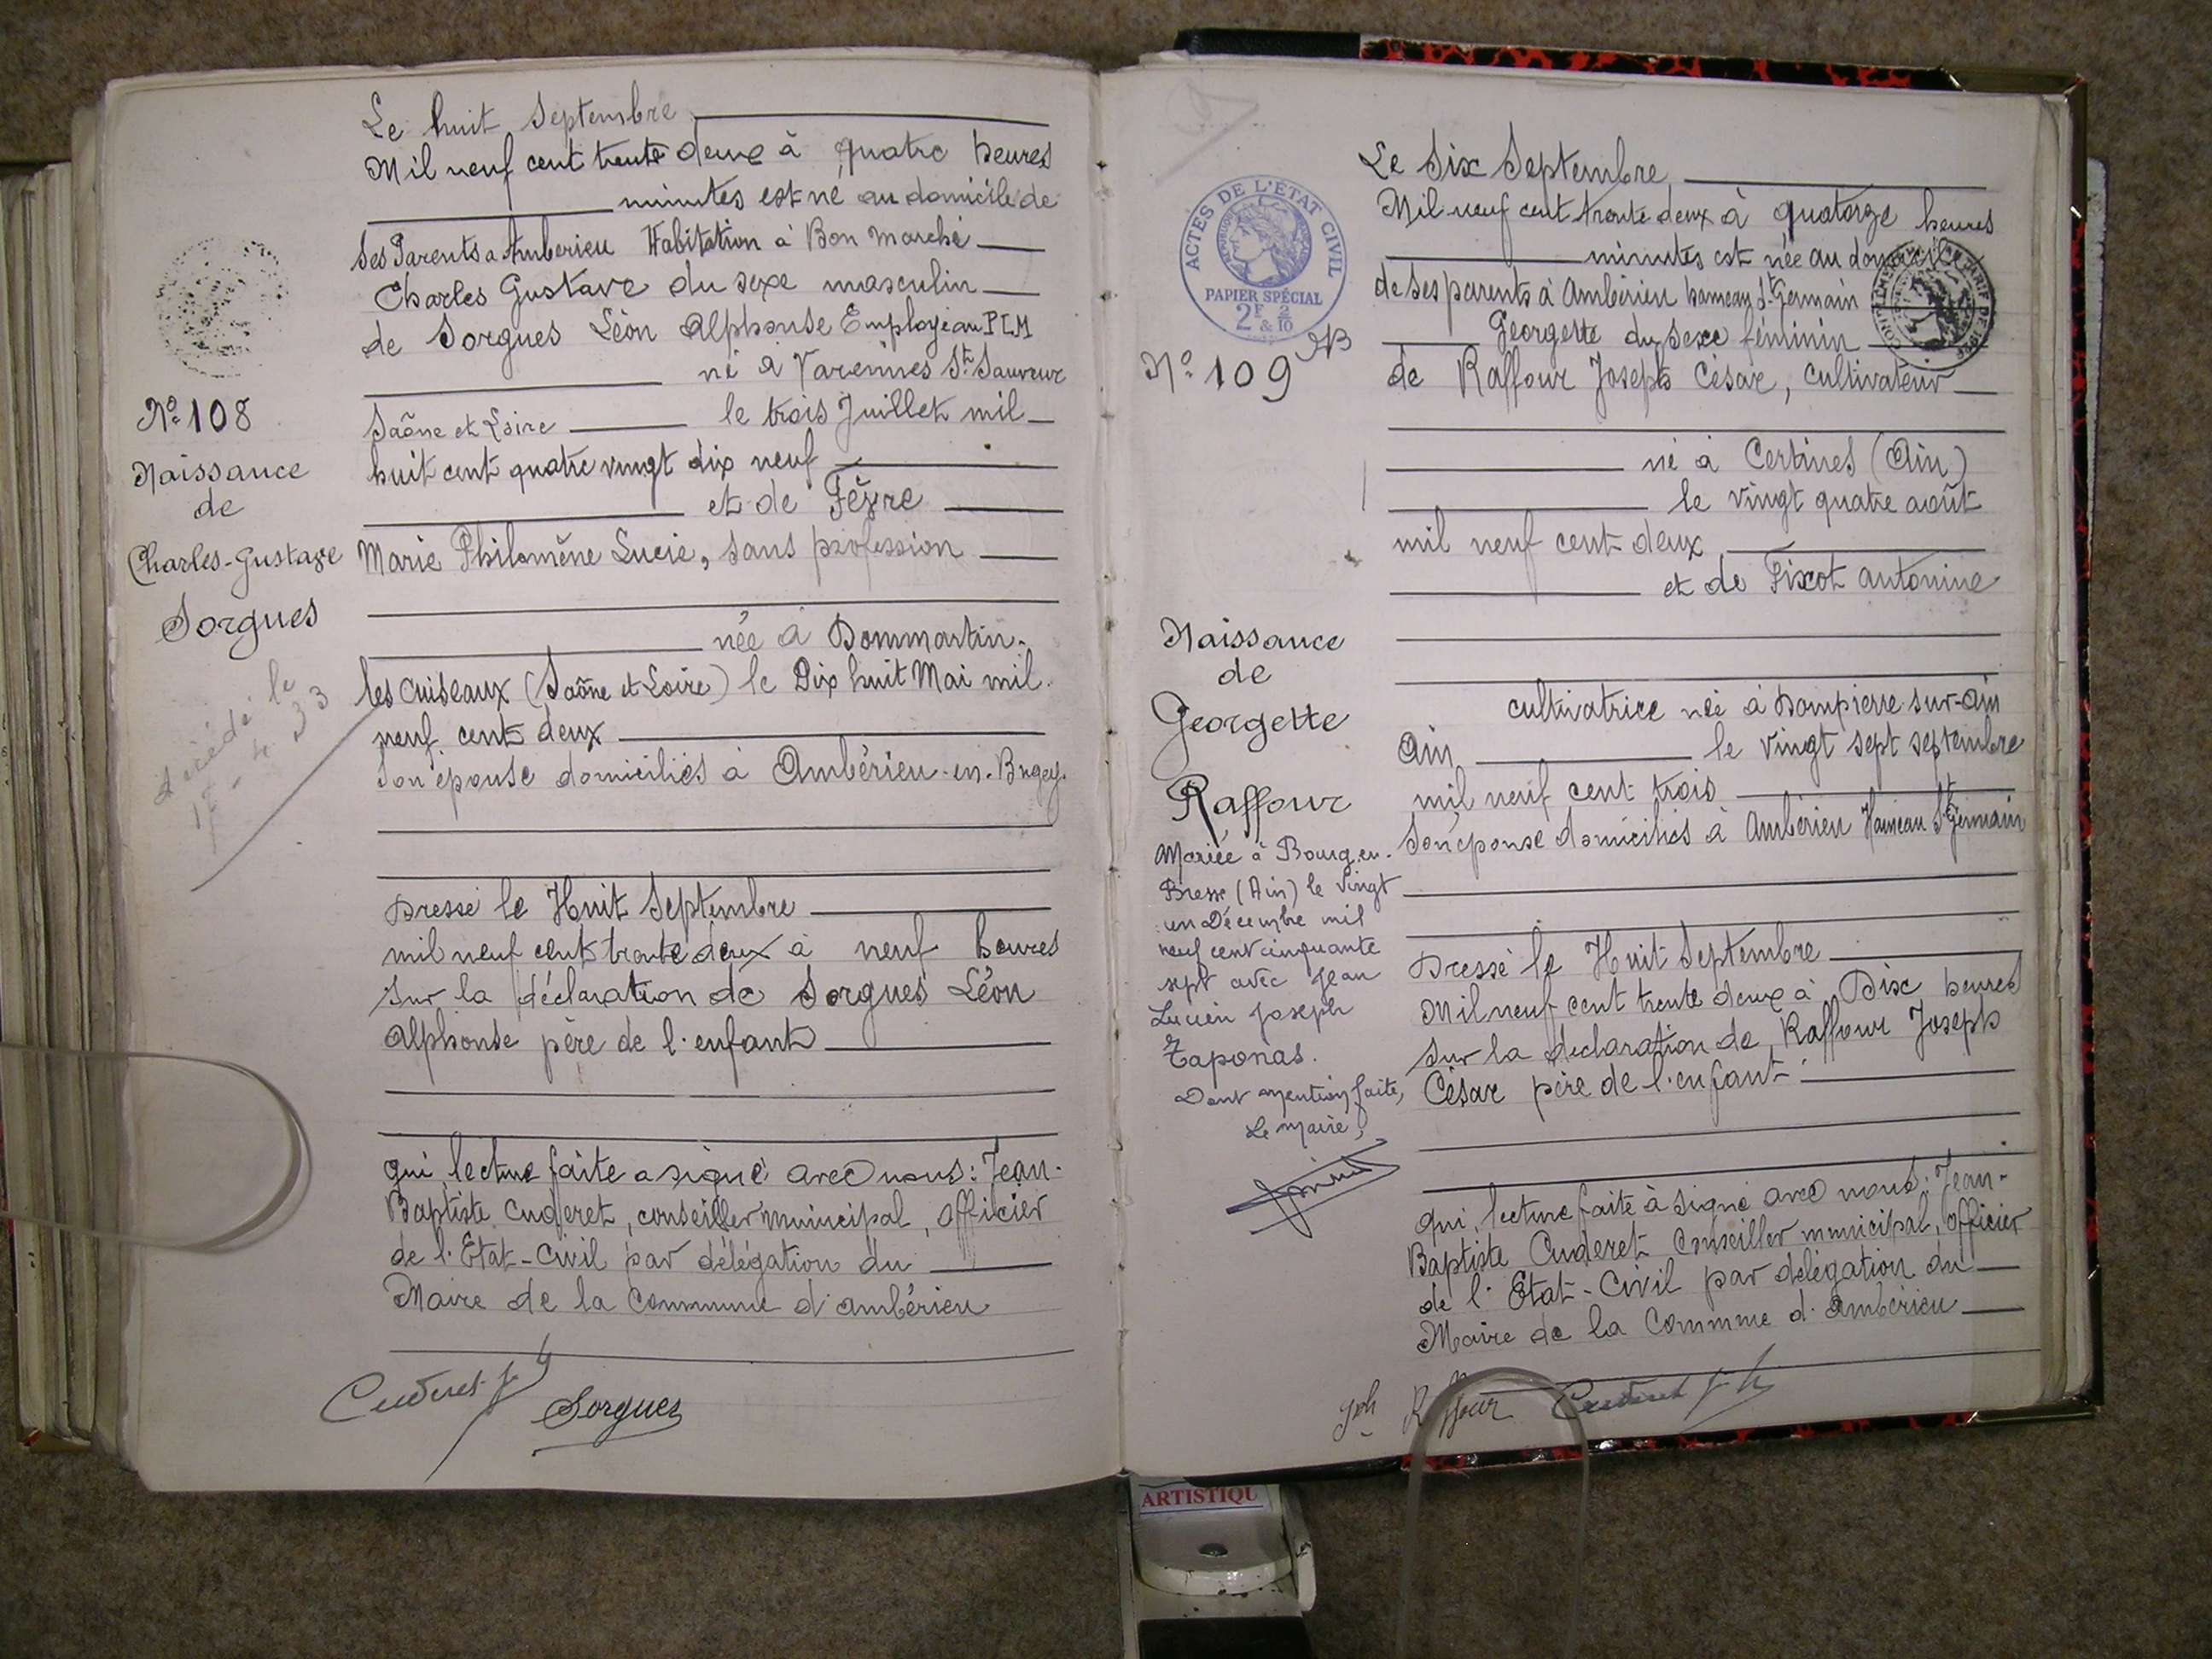 Le huit Septembre
Mil neuf cent trente deux à quatre heures
minutes est né au domicile de
ses Parents a Amberieu Habitation à Bon Marché
Charles Gustave du sexe masculin
de Sorgues Léon Alphonse Employé au PLM
né à Varennes St. Sauveur
Saône et Loire le trois Juillet mil
huit cent quatre vingt dix neuf
et de Fèvre
Marie Philomène Lucie, sans profession
née à Dommartin-
les Cuiseaux (Saône et Loire) le Dix huit Mai mil
neuf cent deux
son épouse domiciliés à Ambérieu-en-Bugey.
Dressé le Huit Septembre
mil neuf cent trente deux à neuf heures
sur la déclaration de Sorgues Léon
Alphonse père de l'enfant
qui, lecture faite a signé avec nous: Jean-
Baptiste Cuderet, conseiller municipal, officier
de l'Etat-Civil par délégation du
Maire de la Commune d'Ambérieu
Cuderet
Sorgues
N° 108
Naissance
de
Charles-Gustave
Sorgues
décédé le
Le Six Septembre
Mil neuf cent trente deux à quatorze heures
minutes est née au domicile
de ses parents à Ambérieu hameau St. Germain
Georgette du sexe féminin
de Raffour Joseph César, cultivateur
né à Certines (Ain)
le vingt quatre août
mil neuf cent deux
et de Fixot Antonine
cultivatrice née à Dompierre-sur-Ain
Ain le vingt sept septembre
mil neuf cent trois
son épouse domiciliés à Ambérieu Hameau St Germain
Dressé le Huit Septembre
Mil neuf cent trente deux à Dix heures
sur la déclaration de Raffour Joseph
César père de l'enfant
qui, lecture faite à signé avec nous: Jean-
Baptiste Cuderet Conseiller municipal, officier
de l'Etat-Civil par délégation du
Maire de la Commune d'Ambérieu
Jph Raffour Cuderet
ACTES DE L'ÉTAT CIVIL
PAPIER SPÉCIAL
2F & 2/10
N° 109
Naissance
de
Georgette
Raffour
Mariée à Bourg-en-
Bresse (Ain) le vingt
un Décembre mil
neuf cent cinquante
sept avec Jean
Lucien Joseph
Taponas.
Dont mention faite,
Le Maire,
ARTISTIQU